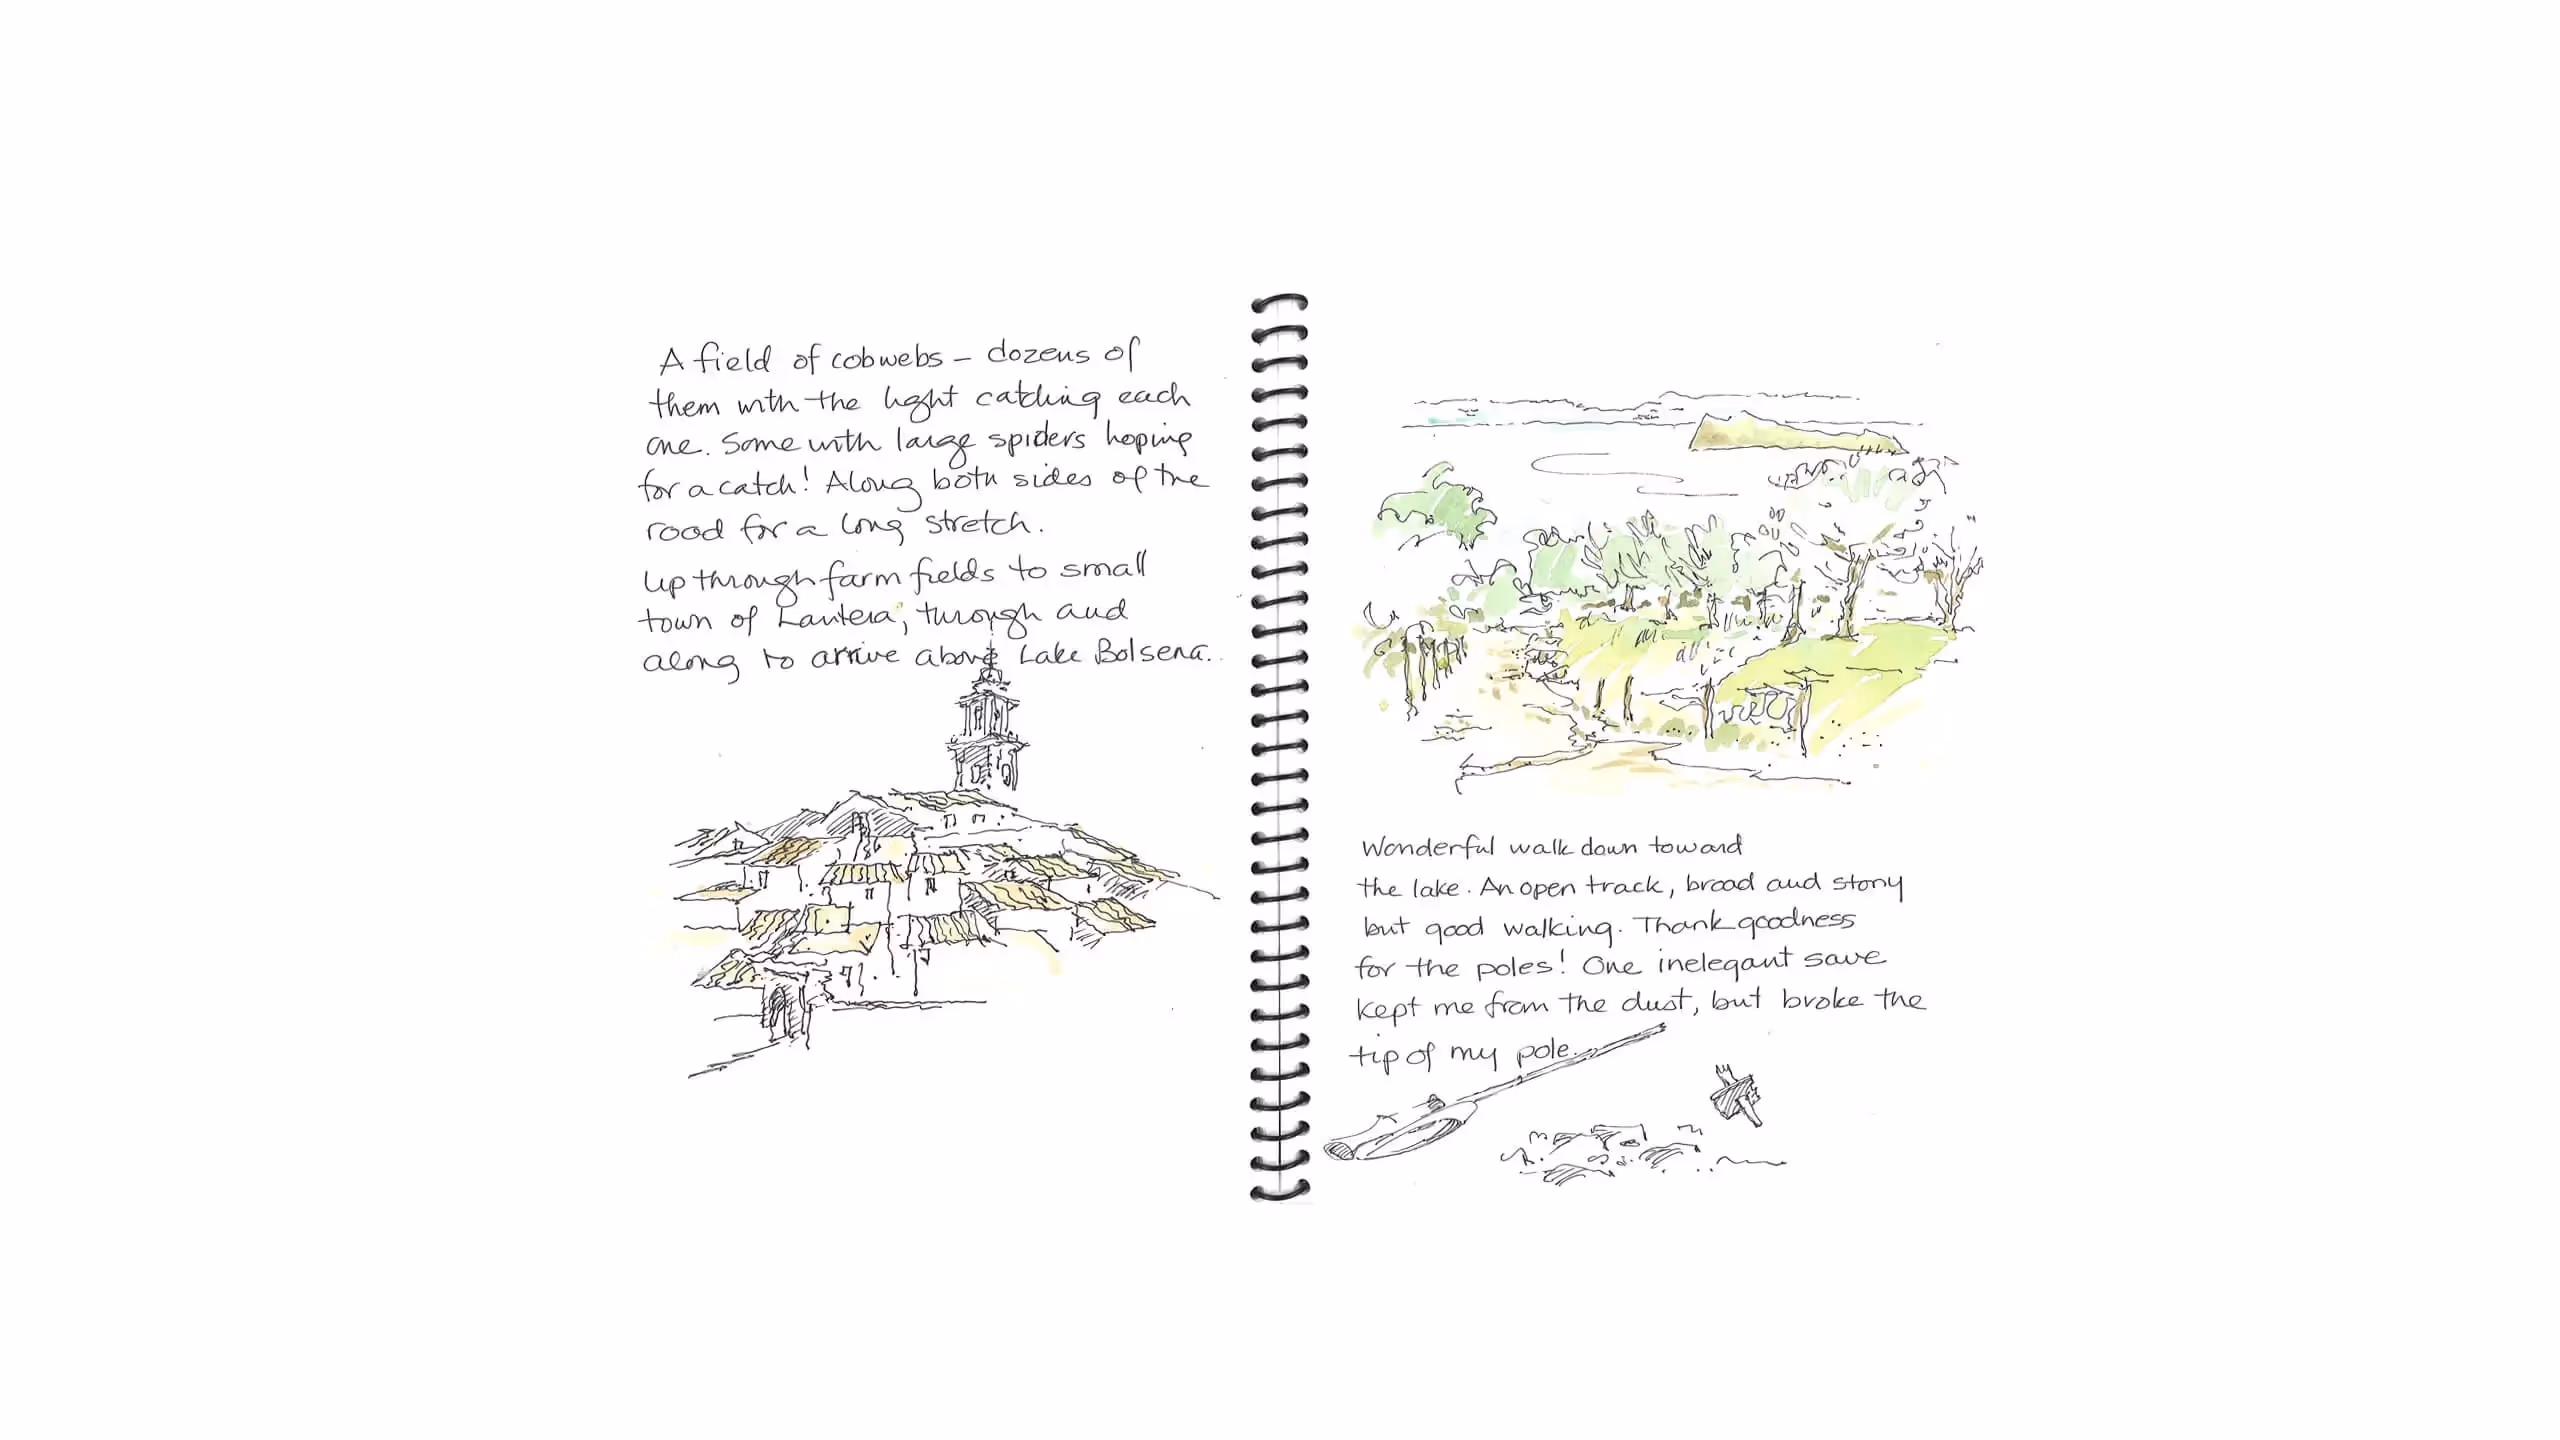 A field of cobwebs – dozens of
them with the light catching each
one. Some with large spiders hoping
for a catch! Along both sides of the
road for a long stretch.
Up through farm fields to small
town of Lantera, through and
along to arrive above Lake Bolsena.
Wonderful walk down toward
the lake. An open track, broad and stony
but good walking. Thank goodness
for the poles! One inelegant save
kept me from the dust, but broke the
tip of my pole.